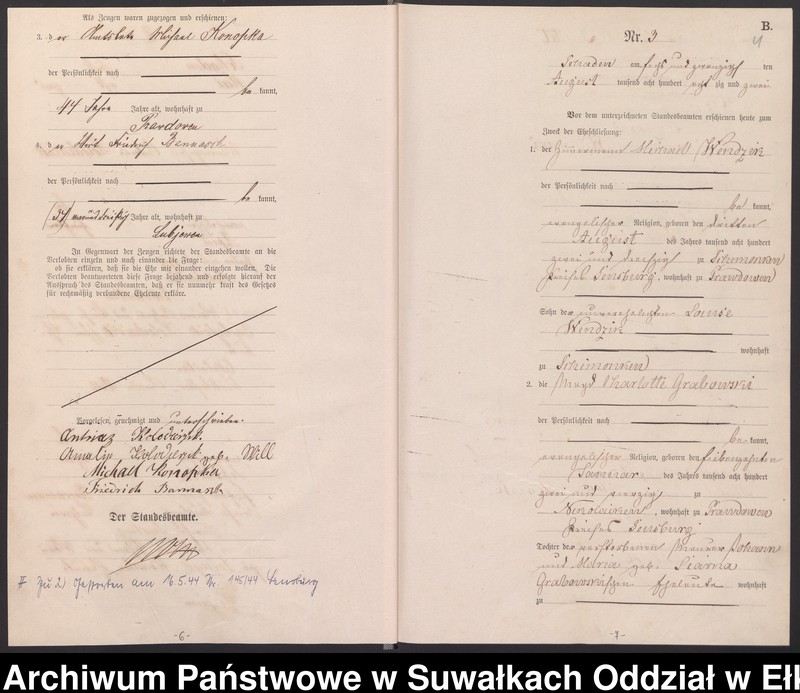 Als Zeugen waren zugezogen und erschienen:
3. der Amtsbote Michael Konopka
der Persönlichkeit nach
be kannt,
44 Jahre Jahre alt, wohnhaft zu
4. der Wirt Friedrich Bannasch
der Persönlichkeit nach
be kannt,
Jahre alt, wohnhaft zu
Lubjewen
In Gegenwart der Zeugen richtete der Standesbeamte an die
Verlobten einzeln und nach einander die Frage:
ob sie erklären, daß sie die Ehe mit einander eingehen wollen. Die
Verlobten beantworteten diese Frage bejahend und erfolgte hierauf der
Ausspruch des Standesbeamten, daß er sie nunmehr kraft des Gesetzes
für rechtmäßig verbundene Eheleute erkläre.
Vorgelesen, genehmigt und unterschrieben.
geb. Will
Michall Konopka
Friedrich Bannasch
Der Standesbeamte.
II Zu 2) Gestorben am 16.5.44 Nr. 145/44 Sensburg
-6-
B.
Nr. 3
4
am sechs und zwanzigsten ten
August tausend acht hundert acht zig und zwei
Vor dem unterzeichneten Standesbeamten erschienen heute zum
Zweck der Eheschließung:
1. der Zimmermann Wendzik
der Persönlichkeit nach
be kannt,
evangelischer Religion, geboren den dritten
August des Jahres tausend acht hundert
zwei und dreißig zu Schimonken
Kreises Sensburg, wohnhaft zu Prawdowen
Sohn der unverehelichten Louise
Wendzik
wohnhaft
zu Schimonken
2. die Magd Charlotte Grabowski
der Persönlichkeit nach
be kannt,
evangelischer Religion, geboren den siebenzehnten
Januar des Jahres tausend acht hundert
zwei und vierzig zu
Nikolaiken, wohnhaft zu Prawdowen
Kreises Sensburg
Tochter der verstorbenen Maurer Johann
und Maria geb.
Grabowskischen Eheleute wohnhaft
zu
-7-
Archiwum Państwowe w Suwałkach Oddział w Eł